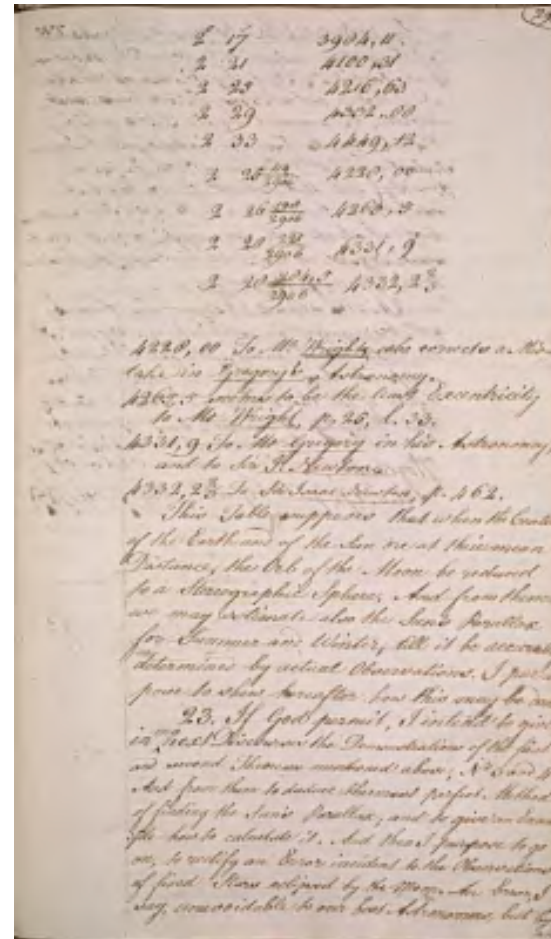 2 17 3904,11.
2 21 4100,31
2 25 4216,63
2 29 4332,00
2 33 4449,12
2 4220,00
2 4260,5
2 20 4331,9
2 20 4332,2
4220,00 To Mr Wright, who corrects a Mis-
take in Gregory's Astronomy.
4260,5 seems to be the limit Excentricity
to Mr Wright, p. 26, l. 33.
4331,9 To Mr Gregory in his Astronomy,
and to Sir I. Newton.
4332,2 To Sir Isaac Newton, p. 462.
This Table supposes that when the
of the Earth and of the Sun are at their mean
Distance, the Orb of the Moon be reduced
to a Stereographic Sphere; And from thence
we may estimate also the Sun's Parallax
for Summer and Winter, till it be
determined by actual Observations. I pur-
pose to shew hereafter how this may be
23. If God permit, I intend to give
in next Discourse the Demonstrations of the first
and second Theorem mentioned above, No 3 and 4
And from them to deduce the most perfect Method
of finding the Sun's Parallax, and to give an Exam-
ple how to calculate it. And then I purpose to go
on, to rectify an Error incident to the Observations
of fixed Stars eclipsed by the Moon. An Error, I
say, unavoidable to our best Astronomers, but